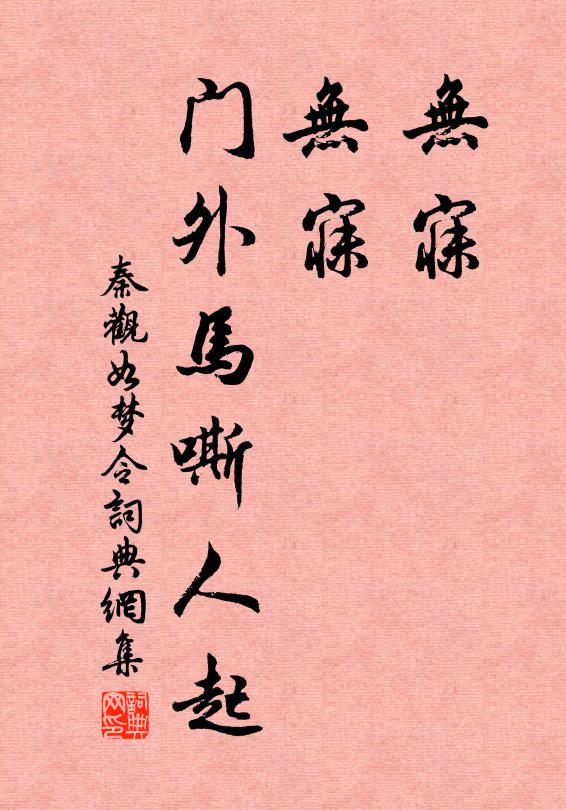 無寐
無寐
门外馬嘶人起
秦觀如梦令詞典網集
詞典网印